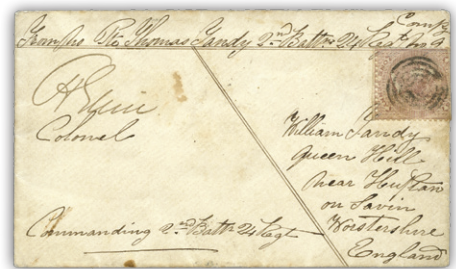 Compy
From Pte Thomas Tandy 2nd Battn 24 Regt
Colonel
Commanding 2nd Battn 24 Regt
William Tandy
Queen Hill
Near Hupton
on Savin
Worstershire
England